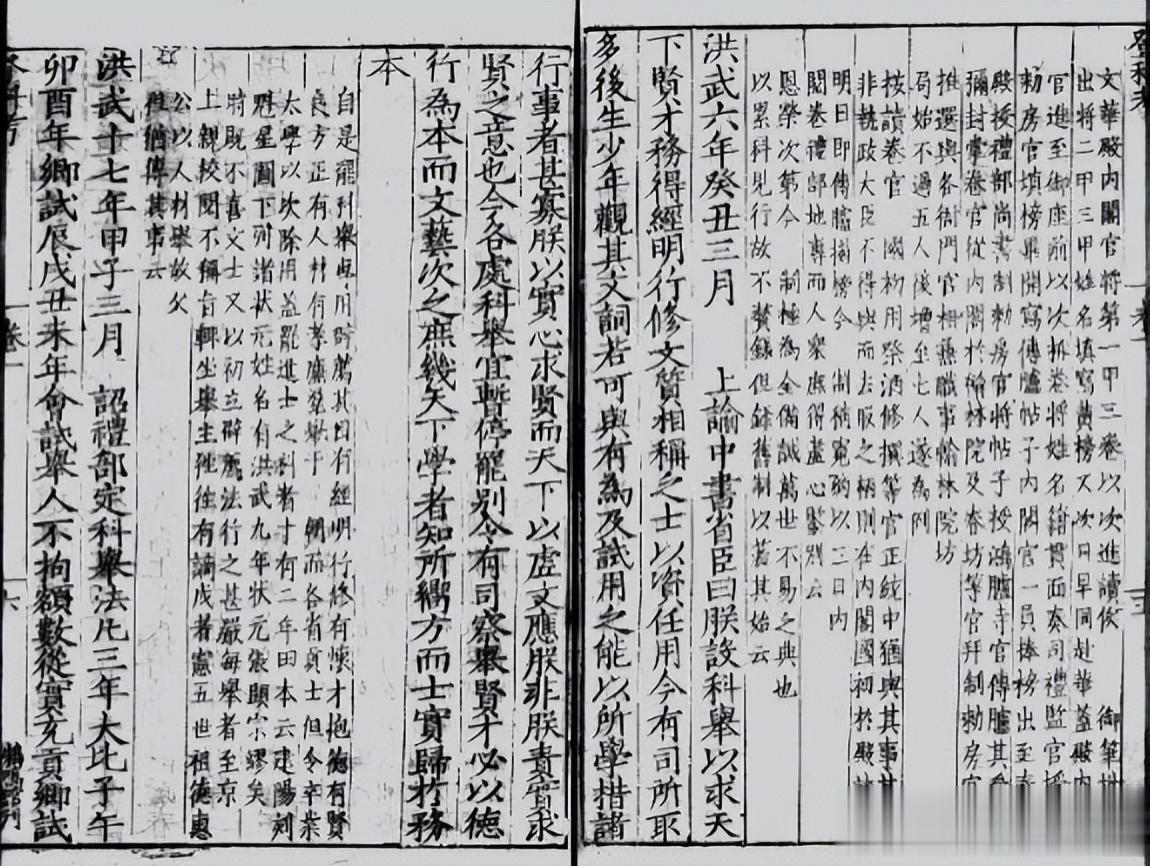 文華殿内閣官將第一甲三卷以次進讀候 御筆批
出將二甲三甲姓名填寫黃榜又次日早同赴華蓋殿内
官進至御座前以次拆卷將姓名籍貫面奏司禮監官授
勑房官填榜畢開寫傳臚帖子内閣官一員捧榜出至奉
殿授禮部尚書制勑房官將帖子授鴻臚寺官傳臚其會
彌封掌卷官從内閣於翰林院及春坊等官并制勑房官
推選與各衙門官相兼職事翰林院坊
局始不過五人後增至七人遂為例
按讀卷官 國初用祭酒修撰等官正統中猶與其事
非執政大臣不得與而去取之柄則在内閣國初於殿試
明日即傳臚掛榜今 制稍寬酌以三日内
閱卷禮部地專而人衆庶得虛心鑒別云
恩榮次第今 制極為全備誠萬世不易之典也
以累科見行故不贅録但録舊制以著其始云
洪武六年癸丑三月 上諭中書省臣曰朕設科舉以求天
下賢才務得經明行修文質相稱之士以資任用今有司所取
多後生少年觀其文詞若可與有為及試用之能以所學措諸
行事者甚寡朕以實心求賢而天下以虛文應朕非朕責實求
賢之意也今各處科舉宜暫停罷别令有司察舉賢才必以德
行為本而文藝次之庶幾天下學者知所嚮方而士實歸於務
本
自是罷科舉專用辟薦其目有經明行修有懷才抱德有賢
良方正有人材有孝廉並徵于 朝而各省貢士但令卒業
太學以次除用蓋罷進士之科者十有二年田本云建陽刻
魁星圖下列諸狀元姓名有洪武九年狀元張顯宗繆矣
時既不喜文士又以初立辟薦法行之甚嚴每舉者至京
上親校閱不稱旨輒坐舉主往往有謫戍者憲五世祖德惠
公以人材舉故父
徃猶傳其事云
洪武十七年甲子三月 詔禮部定科舉法凡三年大比子午
卯酉年鄉試辰戌丑未年會試舉人不拘額數從實充貢鄉試
卷一
六